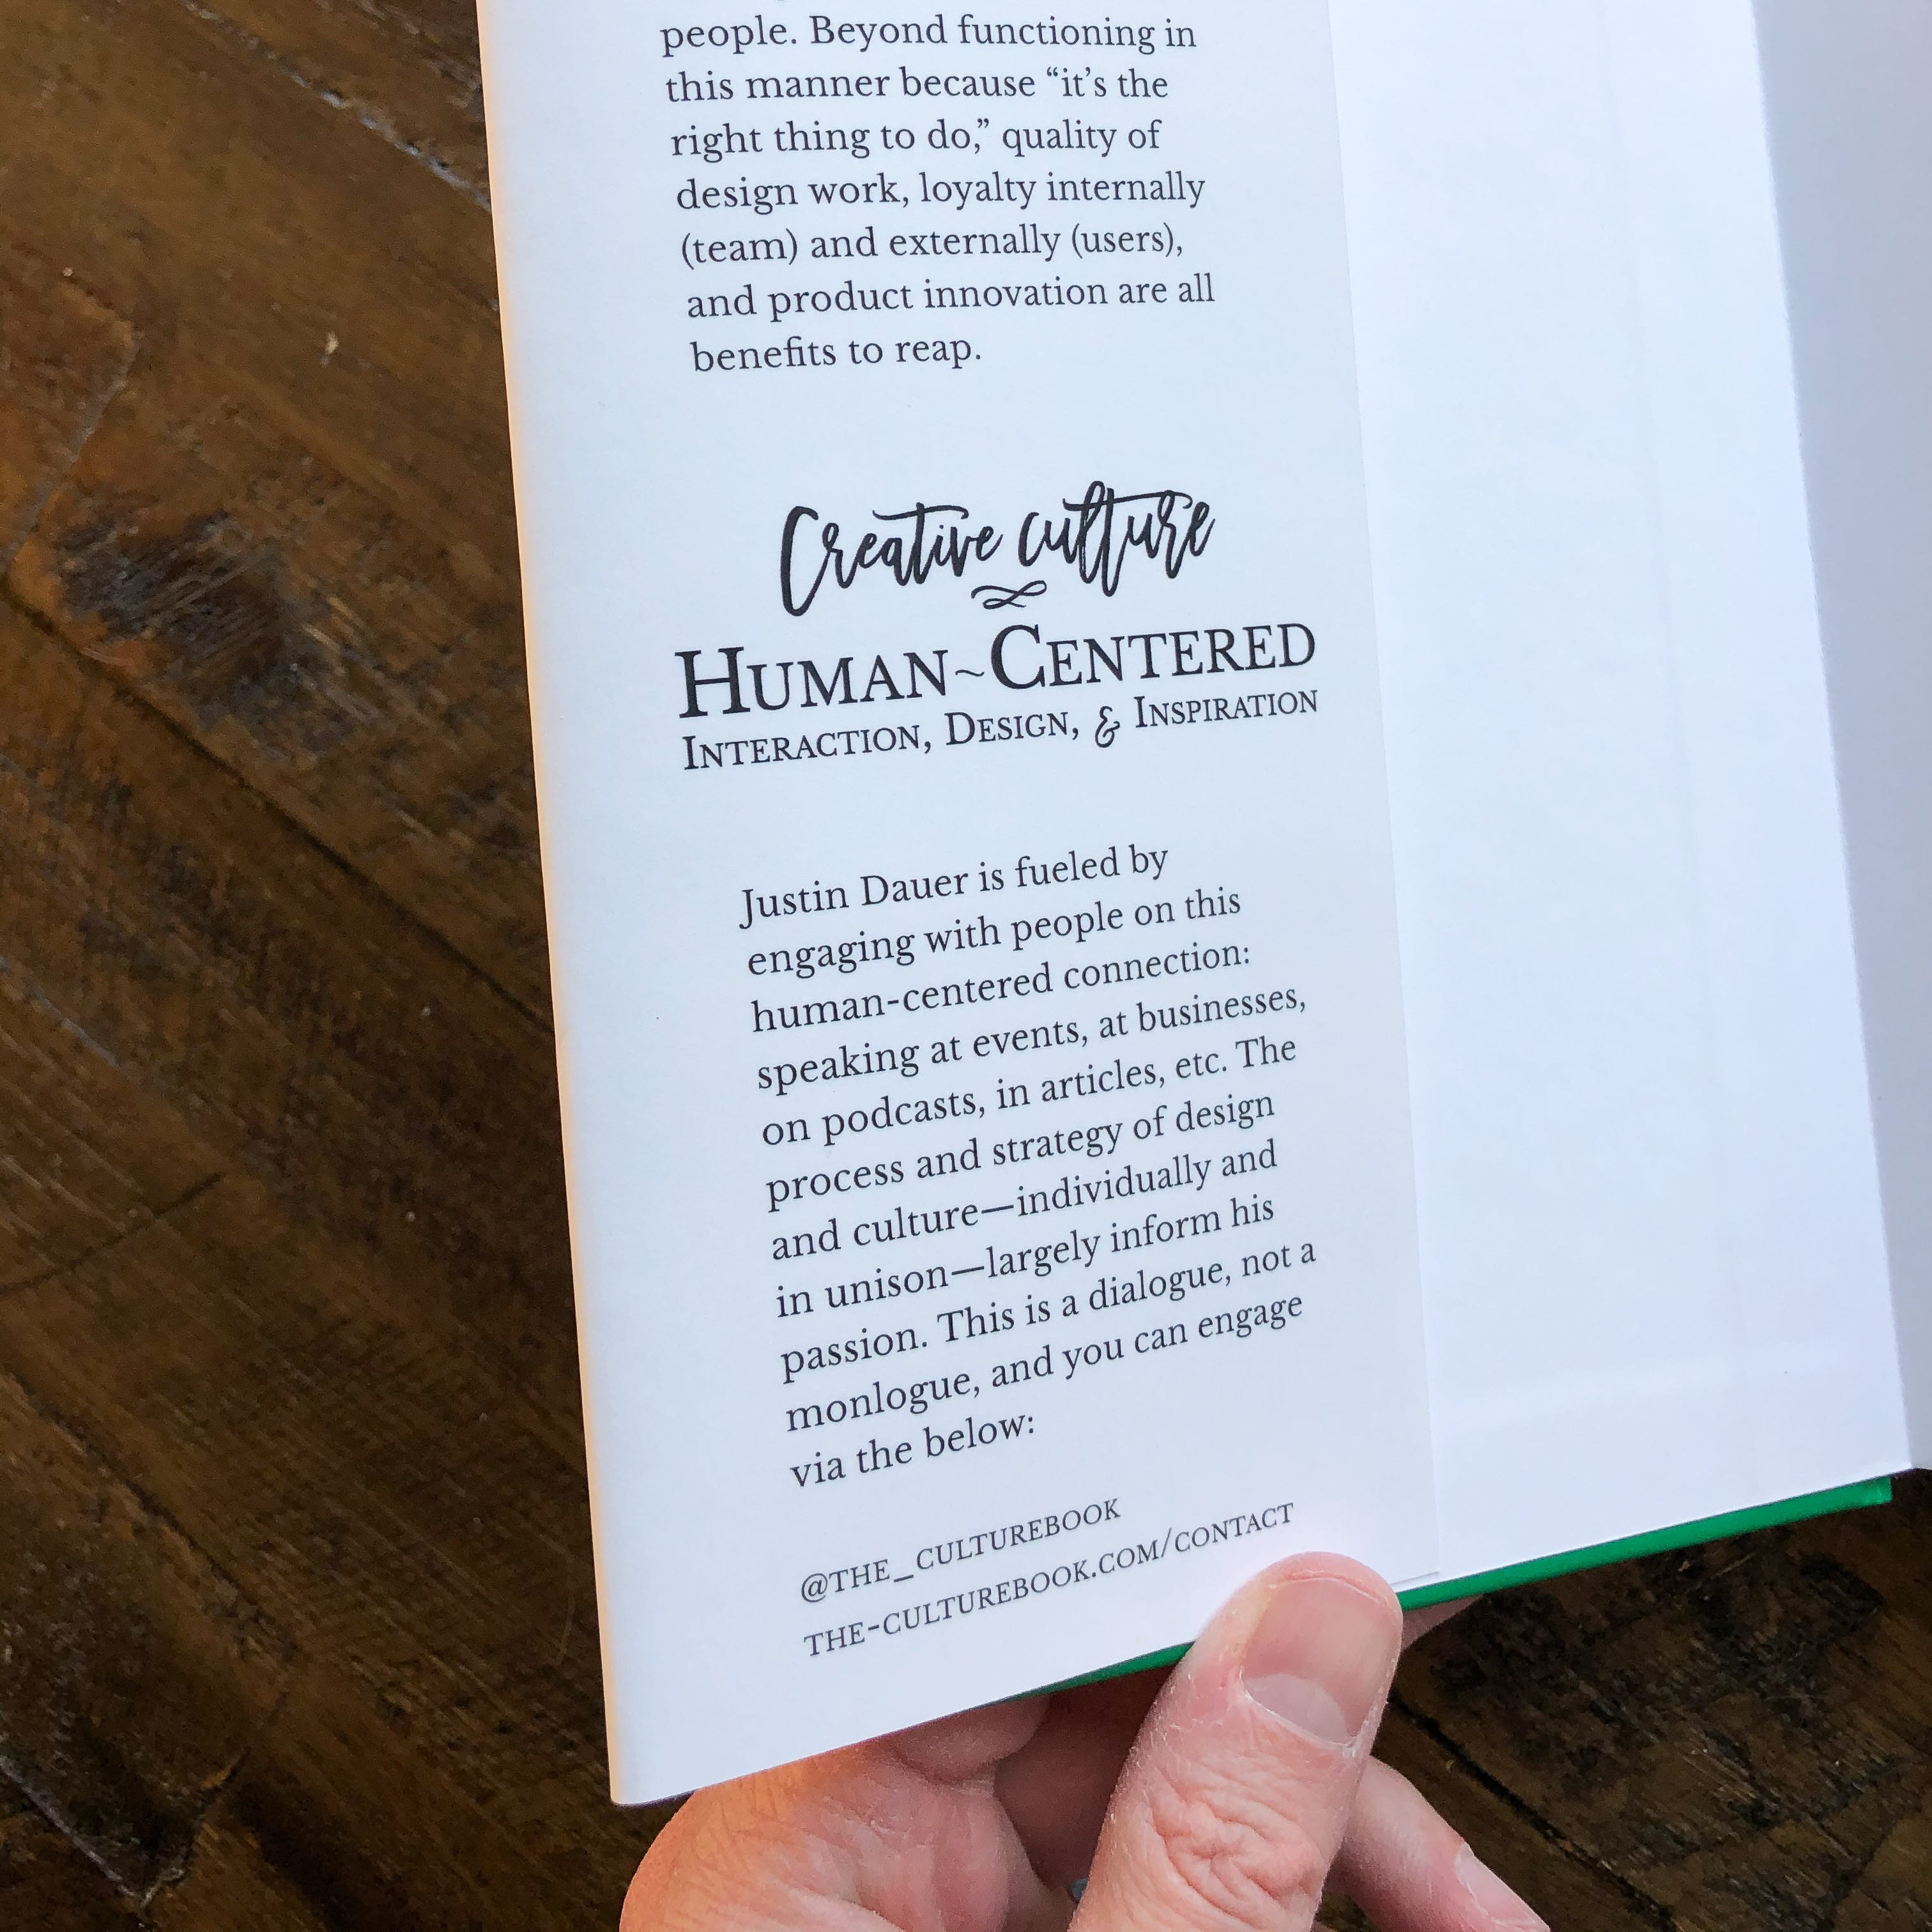 people. Beyond functioning in
this manner because “it’s the
right thing to do,” quality of
design work, loyalty internally
(team) and externally (users),
and product innovation are all
benefits to reap.
Creative culture
HUMAN~CENTERED
INTERACTION, DESIGN, & INSPIRATION
Justin Dauer is fueled by
engaging with people on this
human-centered connection:
speaking at events, at businesses,
on podcasts, in articles, etc. The
process and strategy of design
and culture—individually and
in unison—largely inform his
passion. This is a dialogue, not a
monlogue, and you can engage
via the below:
@THE_CULTUREBOOK
THE-CULTUREBOOK.COM/CONTACT